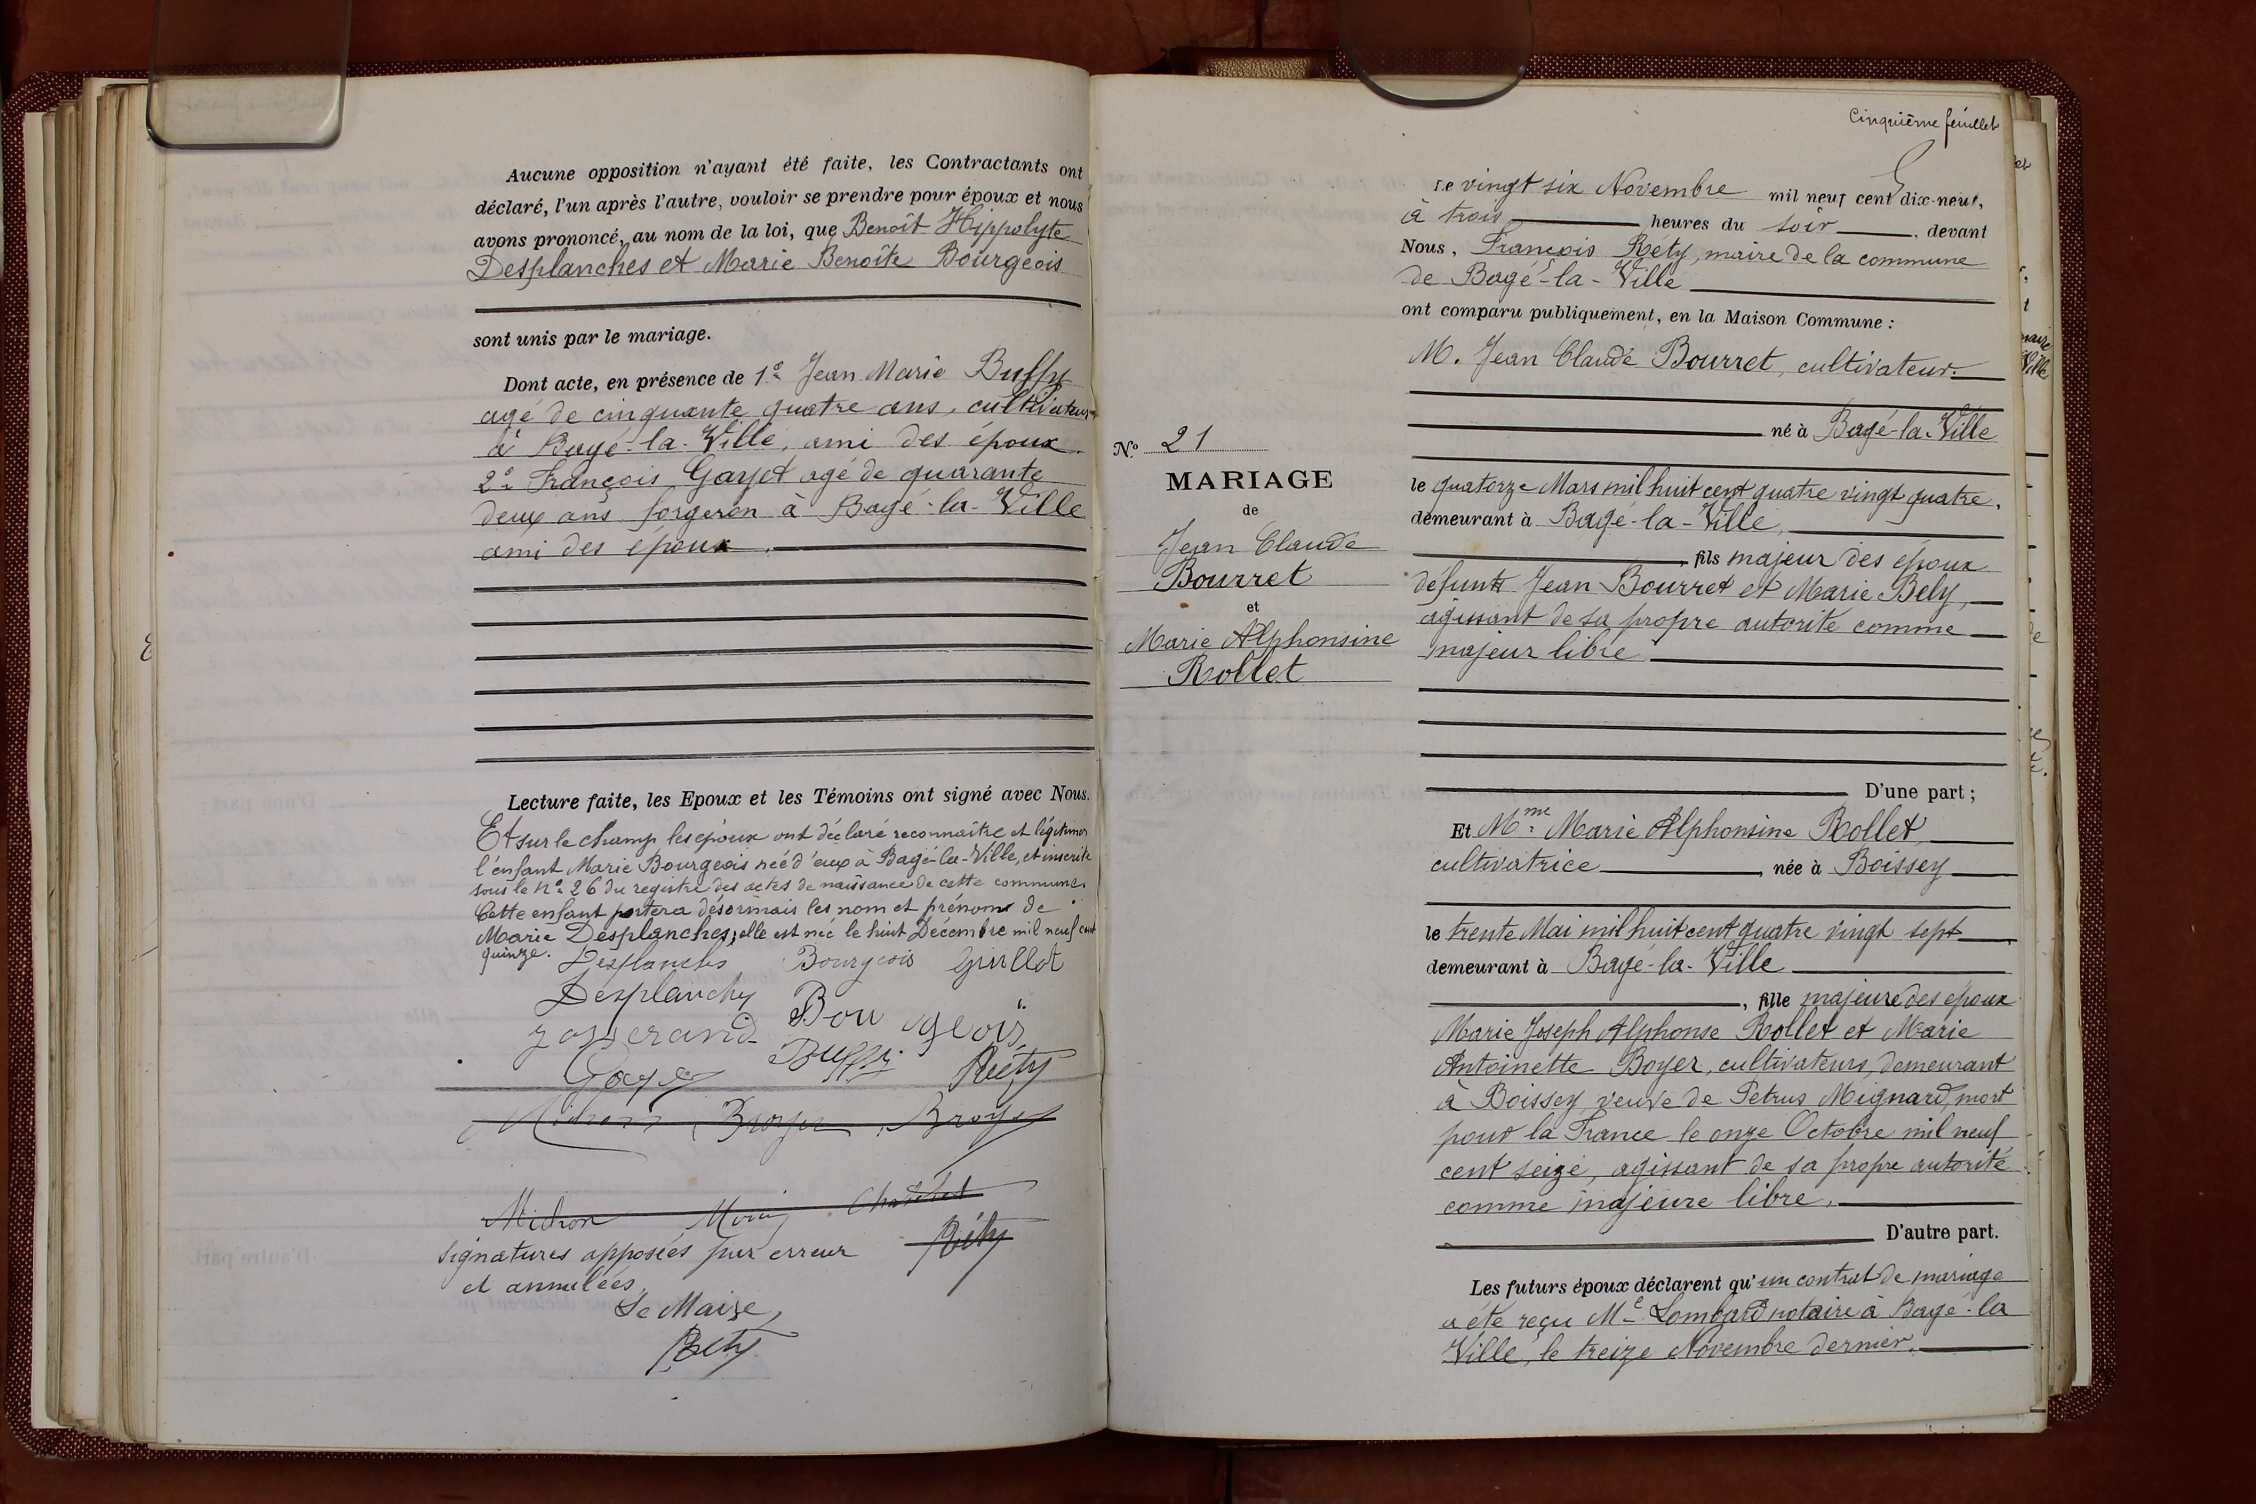 Aucune opposition n'ayant été faite, les Contractants ont
déclaré, l'un après l'autre, vouloir se prendre pour époux et nous
avons prononcé, au nom de la loi, que Benoît Hippolyte
Desplanches et Marie Benoîte Bourgeois
sont unis par le mariage.
Dont acte, en présence de 1º Jean Marie Buffy
agé de cinquante quatre ans, cultivateur
à Bagé-la-Ville, ami des époux.
2º François Gayet agé de quarante
deux ans forgeron à Bagé-la-Ville
ami des époux.
Lecture faite, les Epoux et les Témoins ont signé avec Nous.
Et sur le champ les époux ont déclaré reconnaître et légitimer
l'enfant Marie Bourgeois née d'eux à Bagé-la-Ville, et inscrite
sous le nº 26 du registre des actes de naissance de cette commune.
Cette enfant portera désormais les nom et prénoms de
Marie Desplanches; elle est née le huit Décembre mil neuf cent
quinze. Desplanches Bourgeois Guillot
Desplanches Bourgeois
Josserand Buffy
Gayet Réty
Michon Broyer Broyer
Michon Morin
signatures apposées par erreur Réty
et annulées.
Le Maire,
Réty
Cinquième feuillet
Le vingt six Novembre mil neuf cent dix-neuf,
à trois heures du soir, devant
Nous, François Réty, maire de la commune
de Bagé-la-Ville
ont comparu publiquement, en la Maison Commune :
M. Jean Claude Bourret, cultivateur
né à Bagé-la-Ville
le quatorze Mars mil huit cent quatre vingt quatre.
demeurant à Bagé-la-Ville,
fils majeur des époux
défunts Jean Bourret et Marie Bely,
agissant de sa propre autorité comme
majeur libre
D'une part ;
Nº 21
MARIAGE
de
Jean Claude
Bourret
et
Marie Alphonsine
Rollet
Et Mme Marie Alphonsine Rollet,
cultivatrice, née à Boissey
le trente Mai mil huit cent quatre vingt sept
demeurant à Bagé-la-Ville
, fille majeure des époux
Marie Joseph Alphonse Rollet et Marie
Antoinette Boyer, cultivateurs, demeurant
à Boissey, veuve de Petrus Mignard, mort
pour la France le onze Octobre mil neuf
cent seize, agissant de sa propre autorité
comme majeure libre.
D'autre part.
Les futurs époux déclarent qu'un contrat de mariage
a été reçu Me Lombard notaire à Bagé-la
Ville, le treize Novembre dernier.